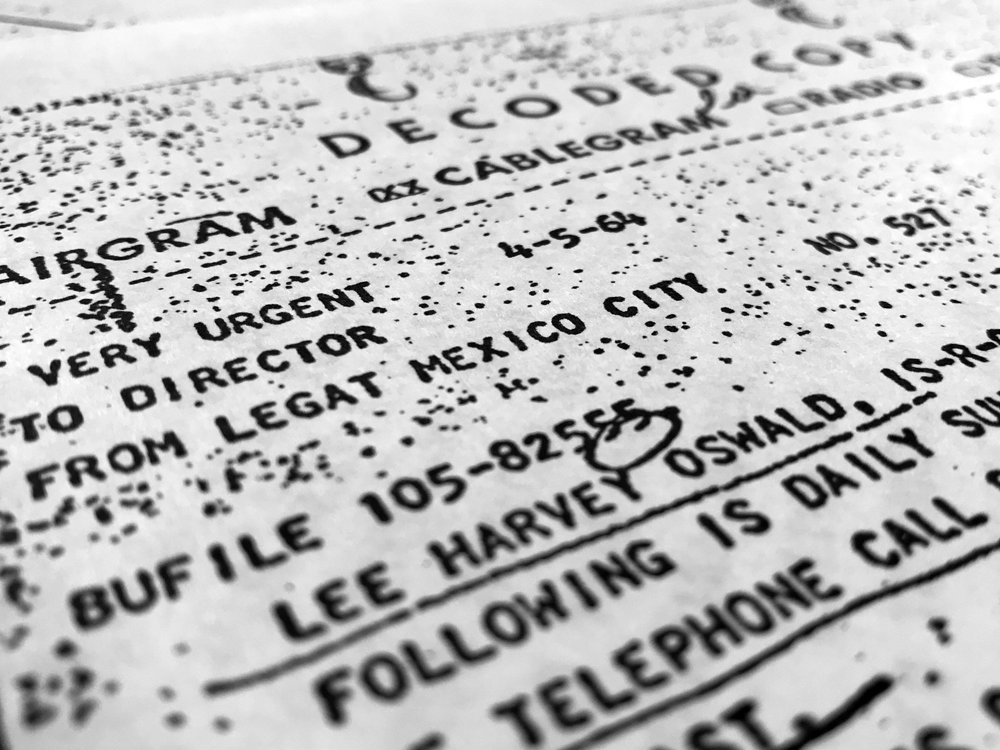 DECODED COPY
AIRGRAM CABLEGRAM RADIO
VERY URGENT 4-5-64 NO. 527
TO DIRECTOR
FROM LEGAT MEXICO CITY
BUFILE 105-82555
LEE HARVEY OSWALD, IS-R-
FOLLOWING IS DAILY
TELEPHONE CALL